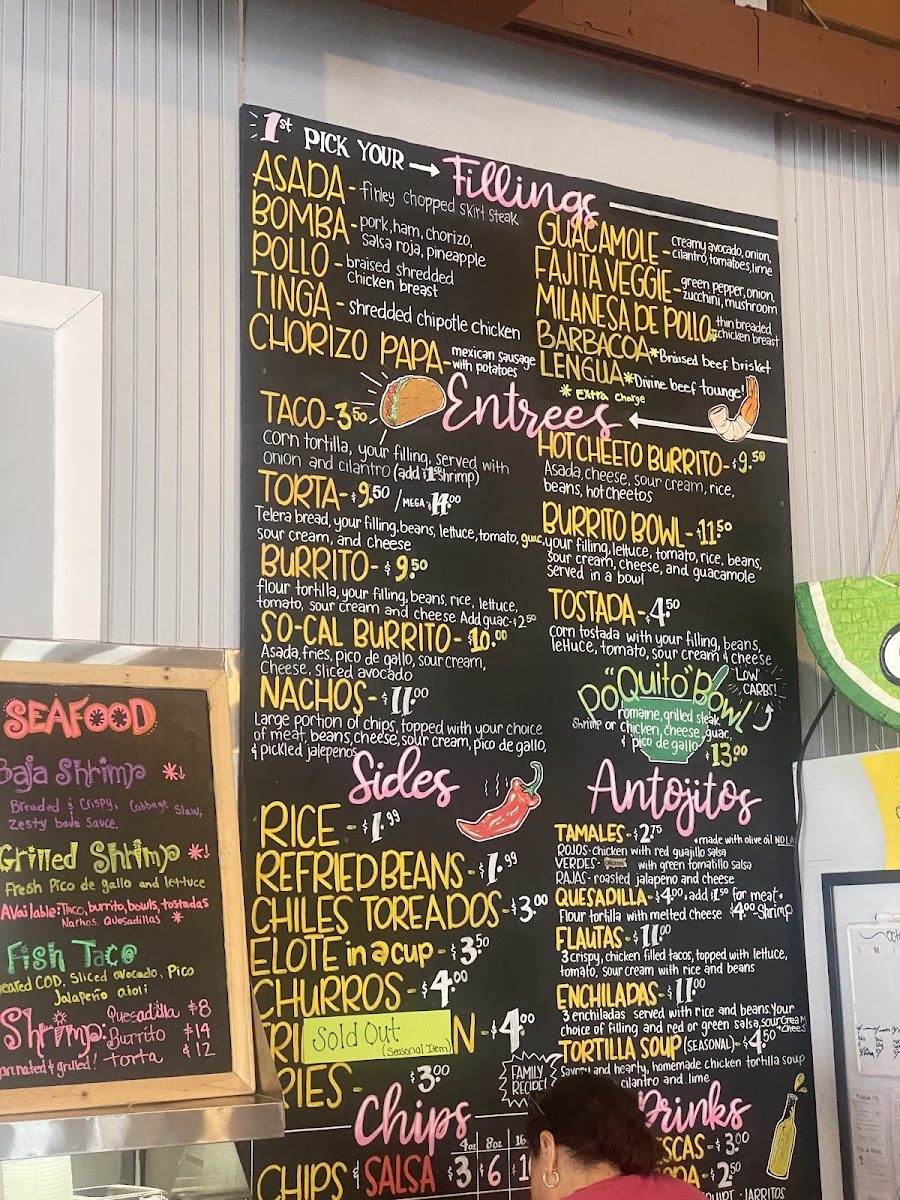 1st PICK YOUR → Fillings
ASADA - finley chopped skirt steak
BOMBA - pork, ham, chorizo,
salsa roja, pineapple
POLLO - braised shredded
chicken breast
TINGA - shredded chipotle chicken
CHORIZO PAPA - mexican sausage
with potatoes
GUACAMOLE - creamy avocado, onion,
cilantro, tomatoes, lime
FAJITA VEGGIE - green pepper, onion,
zucchini, mushroom
MILANESA DE POLLO * thin breaded
chicken breast
BARBACOA * Braised beef brisket
LENGUA * Divine beef tounge!
* Extra charge
Entrees
TACO - 3.50
corn tortilla, your filling, served with
onion and cilantro (add $1.50 shrimp)
TORTA - $9.50 / MEGA $14.00
Telera bread, your filling, beans, lettuce, tomato, guac,
sour cream, and cheese
BURRITO - $9.50
flour tortilla, your filling, beans, rice, lettuce,
tomato, sour cream and cheese Add guac - $2.50
SO-CAL BURRITO - $10.00
Asada, fries, pico de gallo, sour cream,
Cheese, sliced avocado
NACHOS - $11.00
Large portion of chips, topped with your choice
of meat, beans, cheese, sour cream, pico de gallo,
& pickled jalepenos
HOT CHEETO BURRITO - $9.50
Asada, cheese, sour cream, rice,
beans, hot cheetos
BURRITO BOWL - $11.50
your filling, lettuce, tomato, rice, beans,
sour cream, cheese, and guacamole
served in a bowl
TOSTADA - $4.50
corn tostada with your filling, beans,
lettuce, tomato, sour cream & cheese
Po"Quito" Bowl
"LOW" CARBS!
romaine, grilled steak
Shrimp or chicken, cheese, guac,
& pico de gallo
$13.00
Sides
RICE - $1.99
REFRIED BEANS - $1.99
CHILES TOREADOS - $3.00
ELOTE in a cup - $3.50
CHURROS - $4.00
FRI N - $4.00
Sold Out
(Seasonal Item)
FRIES - $3.00
Chips
4oz 8oz 16
CHIPS & SALSA $3 $6 $1
Antojitos
TAMALES - $2.75
* made with olive oil NO LA
ROJOS - chicken with red guajillo salsa
VERDES - with green tomatillo salsa
RAJAS - roasted jalapeno and cheese
QUESADILLA - $4.00, add $1.50 for meat *
Flour tortilla with melted cheese $4.00 - Shrimp
FLAUTAS - $11.00
3 crispy, chicken filled tacos, topped with lettuce,
tomato, sour cream with rice and beans
ENCHILADAS - $11.00
3 enchiladas served with rice and beans. Your
choice of filling and red or green salsa, sour cream
+ cheese
TORTILLA SOUP (SEASONAL) - $4.50
Savory and hearty, homemade chicken tortilla soup
cilantro and lime
FAMILY RECIPE!
Drinks
ESCAS - $3.00
ODA - $2.50
JARRITOS
SEAFOOD
Baja Shrimp *
Breaded & Crispy, Cabbage Slaw,
Zesty baja sauce.
Grilled Shrimp *!
Fresh Pico de gallo and lettuce
Available: Taco, burrito, bowls, tostadas
Nachos, Quesadillas *
Fish Taco
eated COD. Sliced avocado, Pico
Jalapeño aioli
Shrimp: Quesadilla $8
Burrito $14
Torta $12
arinated & grilled!